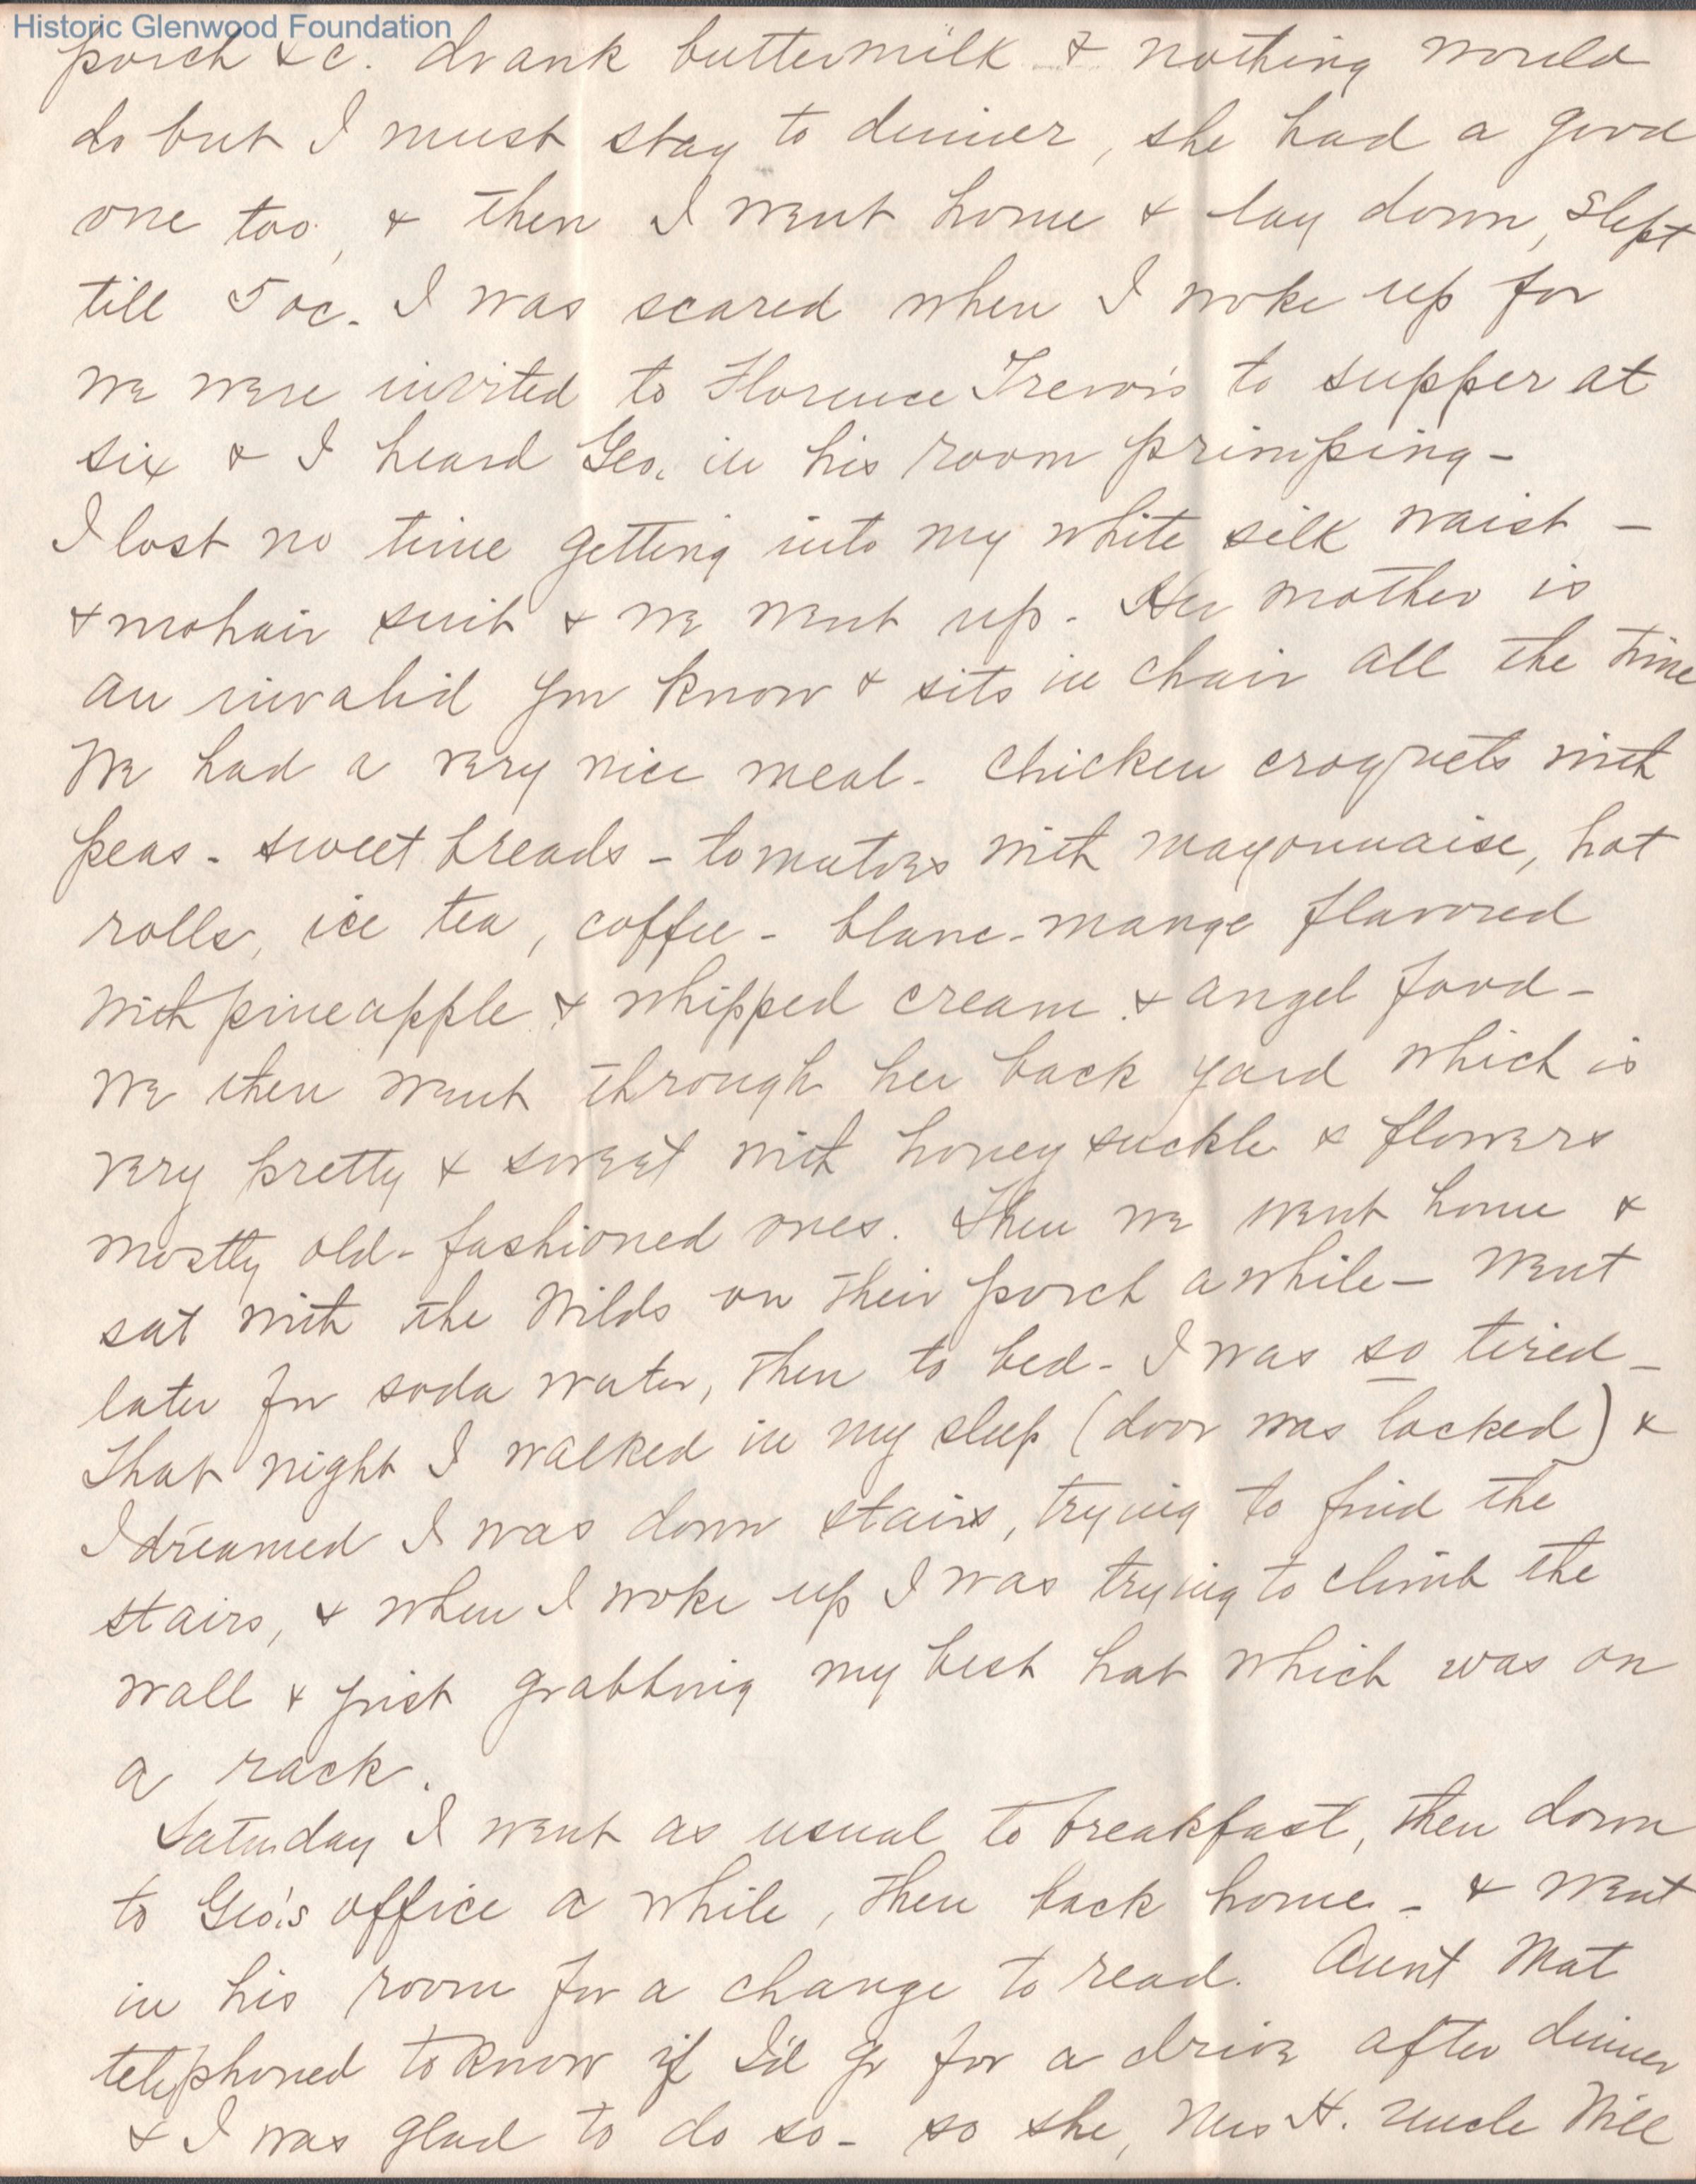 Historic Glenwood Foundation
porch & c. drank buttermilk & nothing would
do but I must stay to dinner, she had a good
one too, & then I went home & lay down, slept
till 5 oc. I was scared when I woke up for
we were invited to Florence to supper at
six & I heard Geo. in his room primping -
I lost no time getting into my white silk waist -
& mohair suit & we went up. Her mother is
an invalid you know & sits in chair all the time
We had a very nice meal - chicken croquets with
peas - sweet breads - tomatoes with mayonnaise, hot
rolls, ice tea, coffee - blanc-mange flavored
with pineapple & whipped cream & angel food -
we then went through her back yard which is
very pretty & sweet with honey suckle & flowers
mostly old-fashioned ones. Then we went home &
sat with the Wilds on their porch a while - went
later for soda water, then to bed - I was so tired -
That night I walked in my sleep (door was locked) &
I dreamed I was down stairs, trying to find the
stairs, & when I woke up I was trying to climb the
wall & just grabbing my best hat which was on
a rack.
Saturday I went as usual to breakfast, then down
to Geo's office a while, then back home - & went
in his room for a change to read. Aunt Mat
telephoned to know if I'd go for a drive after dinner
& I was glad to do so - so she, Mrs H. Uncle Will